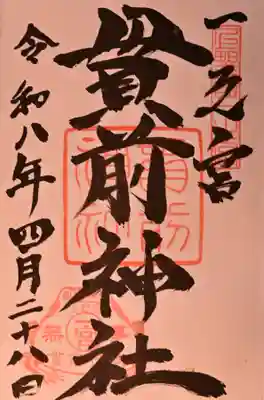 一之宮
貫前神社
令和八年四月二十八日